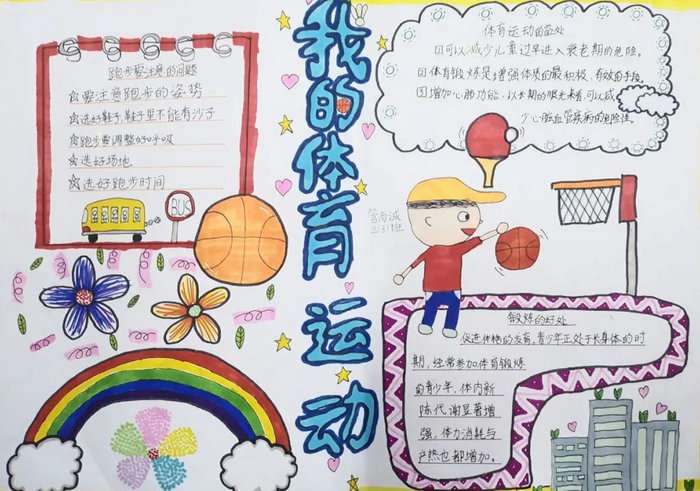 我的体育运动
跑步要注意的问题
☆要注意跑步的姿势
☆选好鞋子,鞋子里不能有沙子
☆跑步要调整好呼吸
☆选好场地
☆选好跑步时间
BUS
体育运动的益处
可以减少儿童过早进入衰老期的危险。
体育锻炼是增强体质的最积极、有效的手段。
增加心肺功能,以长期的眼光来看,可以减
少心脑血管疾病的危险性。
锻炼的好处
促进体格的发育,青少年正处于长身体的时
期,经常参加体育锻炼
的青少年,体内新
陈代谢显著增
强,体力消耗与
产热也都增加。